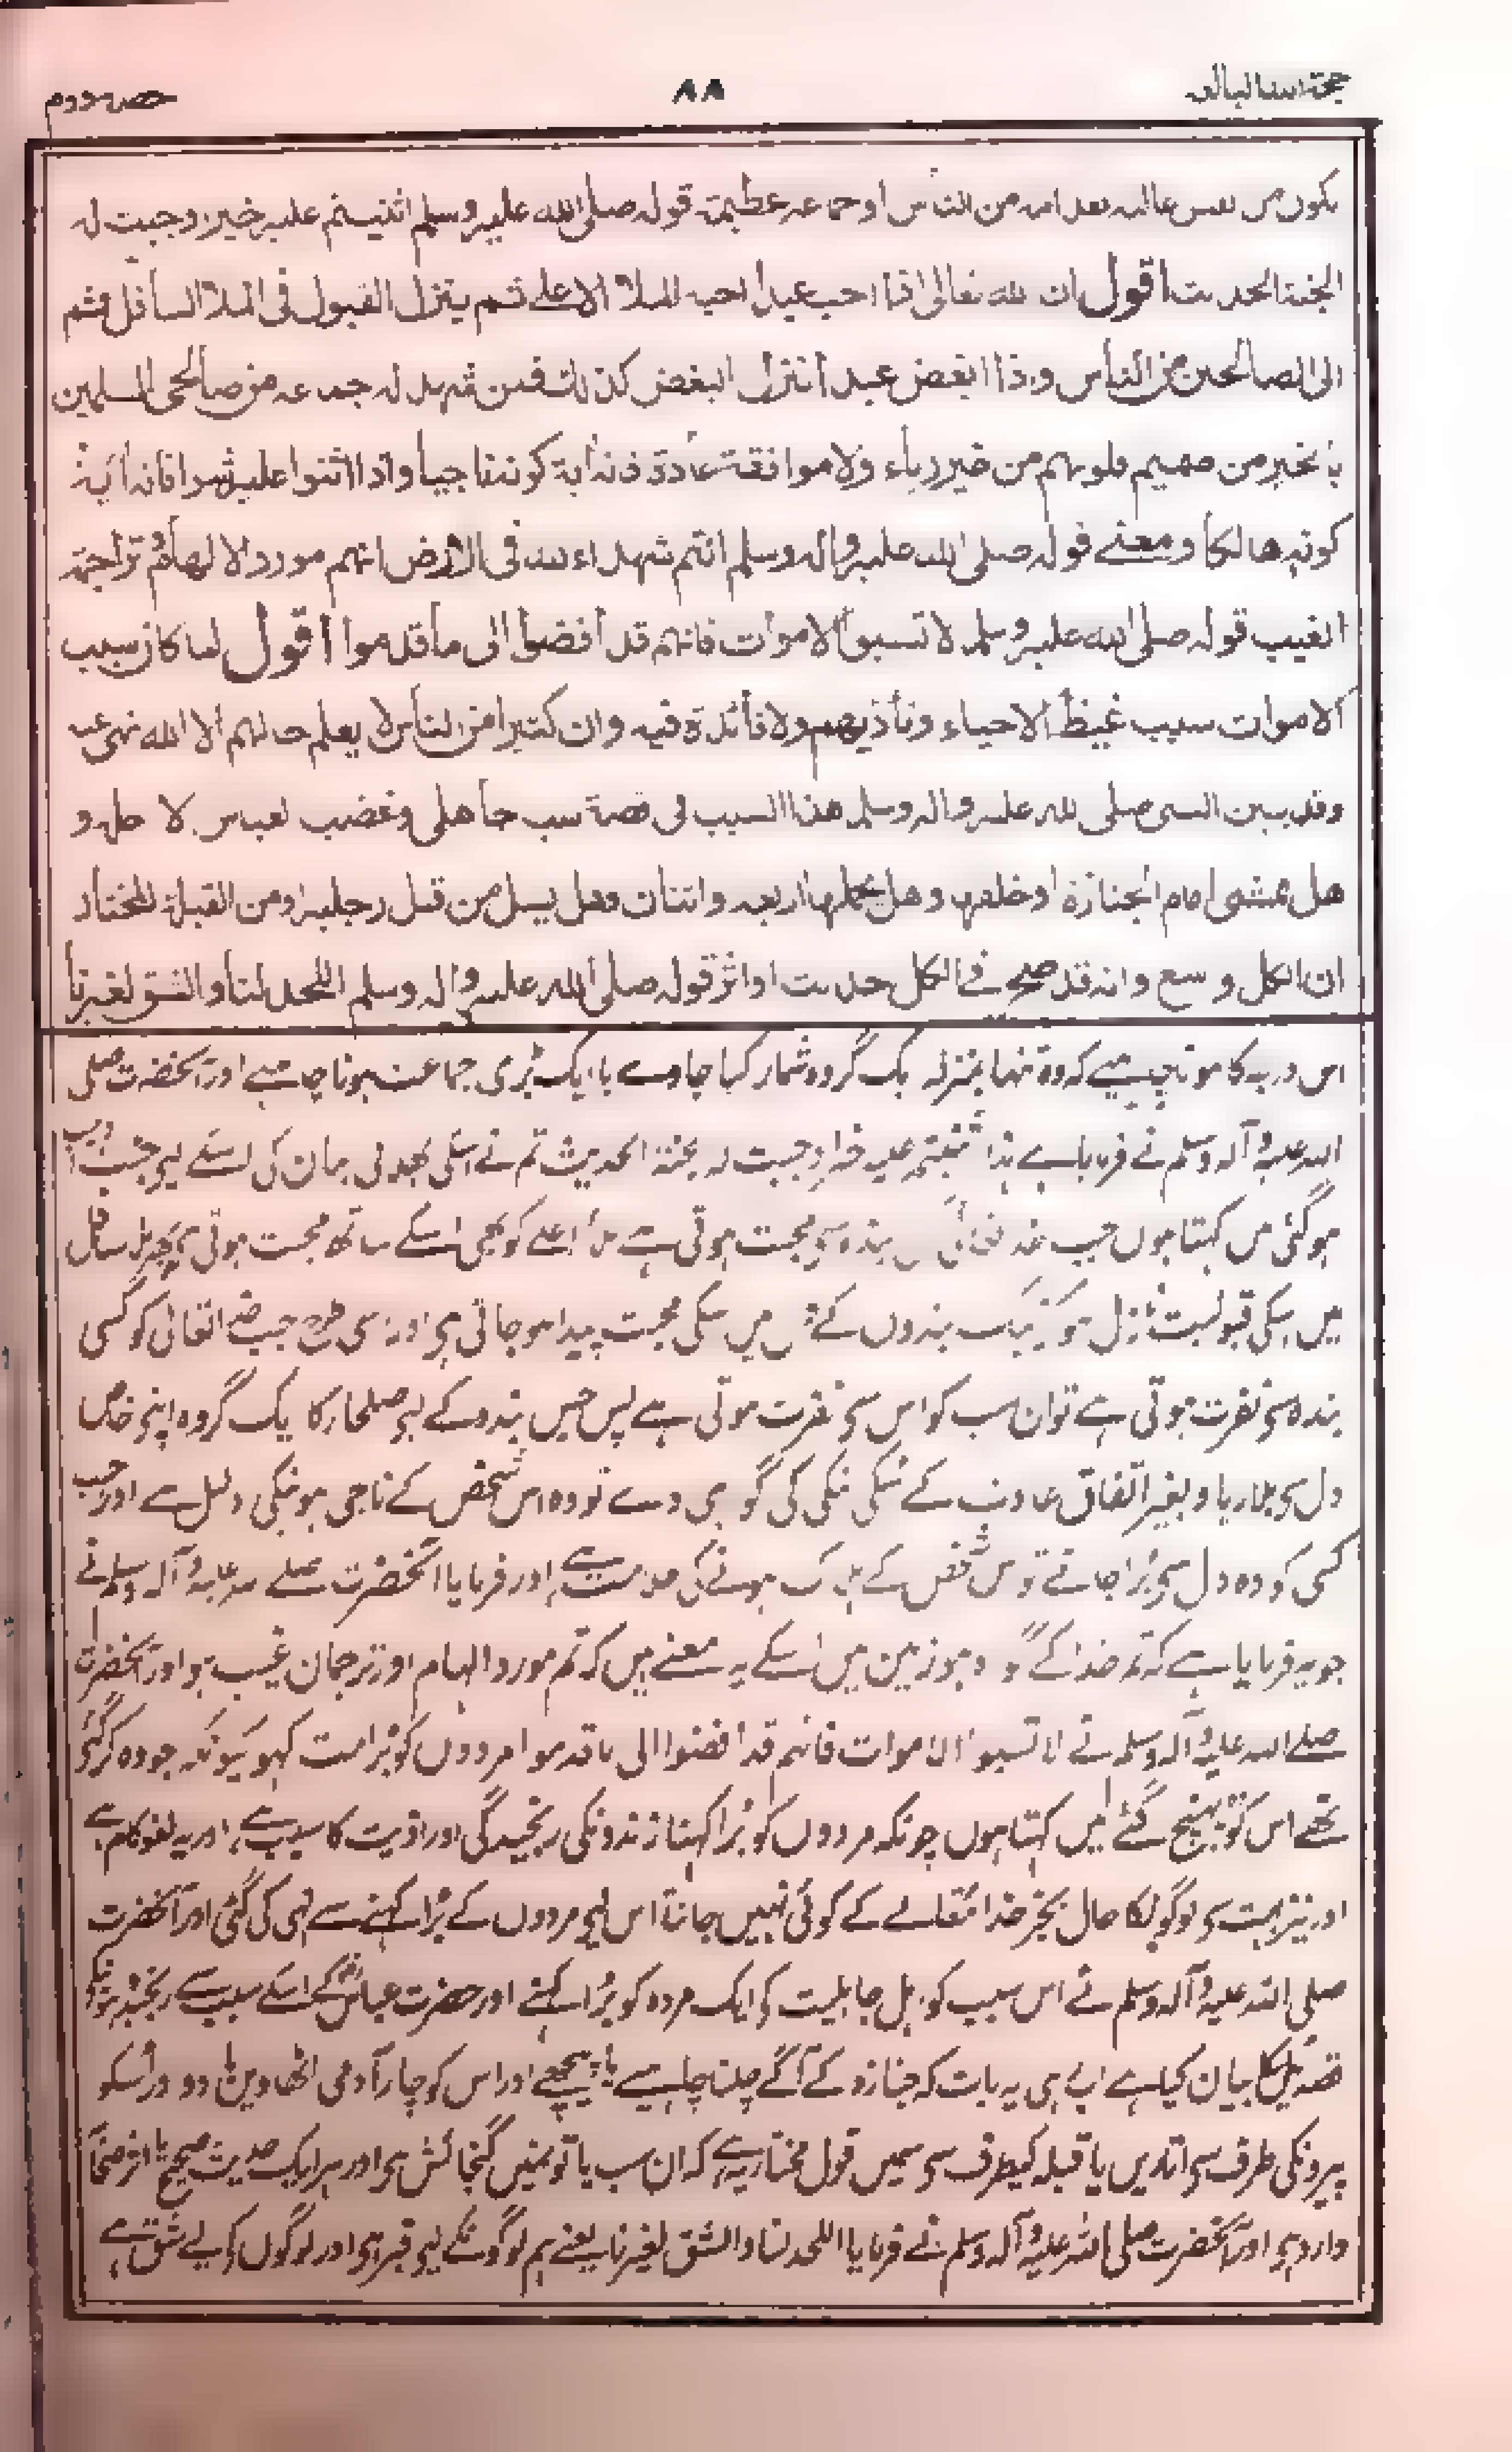 حجۃ اللہ البالغہ ٨٨ حصہ دوم
یکون من نفس عالیہ بعد امہ من الناس او جماعہ عظیمۃ قولہ صلی اللہ علیہ وسلم اثنیتم علیہ خیرا وجبت لہ
الجنۃ الحدیث اقول ان للہ تعالی اذا احب عبدا احبہ الملا الاعلے ثم ینزل القبول فی الملا السافل ثم
الی الصالحین من الناس واذا ابغض عبدا نزل البغض کذلک فمن شہد لہ جماعہ من صالحی المسلمین
بالخیر من صمیم قلوبہم من غیر ریاء ولا موافقۃ عادۃ فانہ اٰیۃ کونہ ناجیا واذا اثنوا علیہ شرا فانہ اٰیۃ
کونہ ھالکا ومعنے قولہ صلی اللہ علیہ واٰلہ وسلم انتم شہداء اللہ فی الارض انہم مورد الالھام وتراجمۃ
الغیب قولہ صلی اللہ علیہ وسلم لا تسبوا الاموات فانہم قد افضوا الی ما قدموا اقول لما کان سب
الاموات سبب غیظ الاحیاء وتأذیھم ولا فائدۃ فیہ وان کثیرا من الناس لا یعلم حالہم الا اللہ نہی عنہ
وقد بین النبی صلی اللہ علیہ واٰلہ وسلم ھذا السبب فی قصۃ سب جاھلی وغضب العباس لاجلہ و
ھل یمشی امام الجنازۃ او خلفہا وھل یحملہا اربعہ او اثنان وھل یسل من قبل رجلیہ او من القبلۃ المختار
ان الکل واسع وانہ قد صح فے الکل حدیث او اثر قولہ صلی اللہ علیہ واٰلہ وسلم اللحد لنا والشق لغیرنا
اس درجہ کا ہونا چاہیے کہ وہ تنہا بمنزلہ یک گروہ شمار کیا جاوے یا ایک بڑی جماعت ہونا چاہیے اور آنحضرت صلی
اللہ علیہ وآلہ وسلم نے فرمایا ہے ہذا اثنیتم علیہ خیرا وجبت لہ الجنۃ الحدیث تم نے اسکی بھلائی بیان کی اسکے لیے جنت واجب
ہوگئی میں کہتا ہوں جب خدا تعالیٰ کو کسی بندہ سے محبت ہوتی ہے ملأ اعلے کو بھی اسکے ساتھ محبت ہوتی ہے پھر ملأ سافل
میں اسکی قبولیت نازل ہوکر نیک بندوں کے دل میں اسکی محبت پیدا ہو جاتی ہے اور اسی طرح جب خدا تعالی کو کسی
بندہ سے نفرت ہوتی ہے تو ان سب کو اس سے نفرت ہوتی ہے پس جس بندہ کے لیے صلحار کا یک گروہ اپنے خاص
دل سے بلا ریا و بغیر اتفاق عادت کے نیکی کی گواہی دے تو وہ اس شخص کے ناجی ہونیکی دلیل ہے اور جب
کسی کو وہ دل سے بُرا جانے تو اس شخص کے ہلاک ہونے کی علامت ہے اور فرمایا آنحضرت صلے اللہ علیہ وآلہ وسلم نے
جو یہ فرمایا ہے کہ تم خدا کے گواہ ہو زمین میں اسکے یہ معنے ہیں کہ تم مورد الہام اور ترجمان غیب ہو اور آنحضرت
صلے اللہ علیہ وآلہ وسلم نے لا تسبوا الاموات فانہم قد افضوا الی ما قدموا مردوں کو بُرا مت کہو کیونکہ جو وہ کرگئے
تھے اس کو پہنچ گئے میں کہتا ہوں چونکہ مردوں کو بُرا کہنا زندونکی رنجیدگی اور اذیت کا سبب ہے اور یہ لغو کام ہے
اور نیز بہت سے لوگونکا حال بجز خدا تعالے کے کوئی نہیں جانتا اس لیے مردوں کے بُرا کہنے سے نہی کی گئی اور آنحضرت
صلی اللہ علیہ وآلہ وسلم نے اس سبب کو اہل جاہلیت کے ایک مردہ کو بُرا کہنے اور حضرت عباسؓ کے اسکے سبب سے رنجیدہ ہونیکے
قصہ میں بیان کیا ہے اب رہی یہ بات کہ جنازہ کے آگے چلنا چاہیے یا پیچھے اور اس کو چار آدمی اٹھاویں یا دو اور اُسکو
پیرونکی طرف سے اتاریں یا قبلہ کیطرف سے اسمیں قول مختار یہ ہے کہ ان سب باتونمیں گنجائش ہے اور ہر ایک میں حدیث صحیح یا اثر صحابہ
وارد ہے اور آنحضرت صلی اللہ علیہ وآلہ وسلم نے فرمایا اللحد لنا والشق لغیرنا یعنے ہم لوگونکے لیے قبر ہے اور لوگوں کے لیے شق ہے